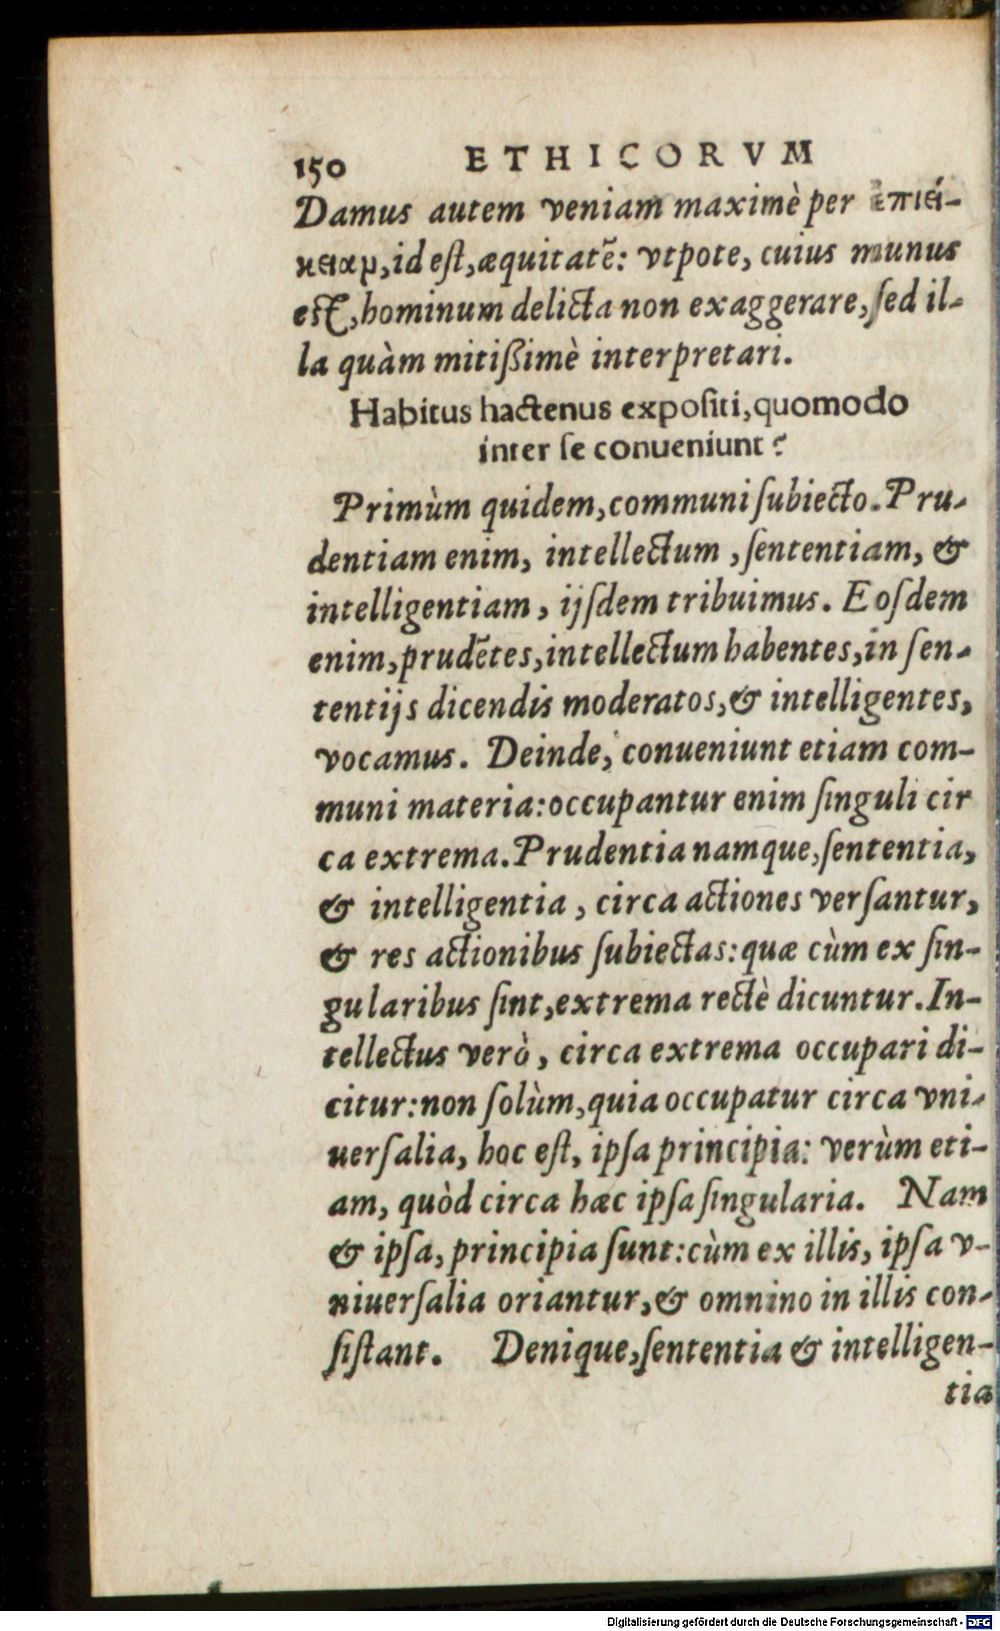 150 ETHICORVM
Damus autem veniam maximè per ἐπιεί-
κειαμ, id eſt, æquitatẽ: vtpote, cuius munus
eſt, hominum delicta non exaggerare, ſed il-
la quàm mitiſsimè interpretari.
Habitus hactenus expoſiti, quomodo
inter ſe conueniunt?
Primùm quidem, communi ſubiecto. Pru-
dentiam enim, intellectum, ſententiam, &
intelligentiam, ijſdem tribuimus. Eoſdem
enim, prudẽtes, intellectum habentes, in ſen-
tentijs dicendis moderatos, & intelligentes,
vocamus. Deinde, conueniunt etiam com-
muni materia: occupantur enim ſinguli cir
ca extrema. Prudentia namque, ſententia,
& intelligentia, circa actiones verſantur,
& res actionibus ſubiectas: quæ cùm ex ſin-
gularibus ſint, extrema rectè dicuntur. In-
tellectus verò, circa extrema occupari di-
citur: non ſolùm, quia occupatur circa vni-
uerſalia, hoc eſt, ipſa principia: verùm eti-
am, quòd circa hæc ipſa ſingularia. Nam
& ipſa, principia ſunt: cùm ex illis, ipſa v-
niuerſalia oriantur, & omnino in illis con-
ſiſtant. Denique, ſententia & intelligen-
tia
Digitalisierung gefördert durch die Deutsche Forschungsgemeinschaft - DFG